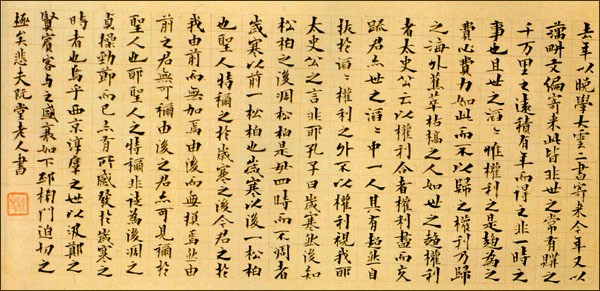 去年以晚學大雲二書寄來今年又以
藕畊文編寄來此皆非世之常有購之
千万里之遠積有年而得之非一時之
事也且世之滔滔惟權利之是趨爲之
費心費力如此而不以歸之權利乃歸
之海外蕉萃枯槁之人如世之趨權利
者太史公云以權利合者權利盡而交
踈君亦世之滔滔中一人其有超然自
拔於滔滔權利之外不以權利視我耶
太史公之言非耶孔子曰歲寒然後知
松柏之後凋松柏是毌四時而不凋者
歲寒以前一松柏也歲寒以後一松柏
也聖人特稱之於歲寒之後今君之於
我由前而無加焉由後而無損焉然由
前之君無可稱由後之君亦可見稱於
聖人也耶聖人之特稱非徒爲後凋之
貞操勁節而已亦有所感發於歲寒之
時者也烏乎西京淳厚之世以汲鄭之
賢賓客與之盛衰如下邳榜門迫切之
極矣悲夫阮堂老人書